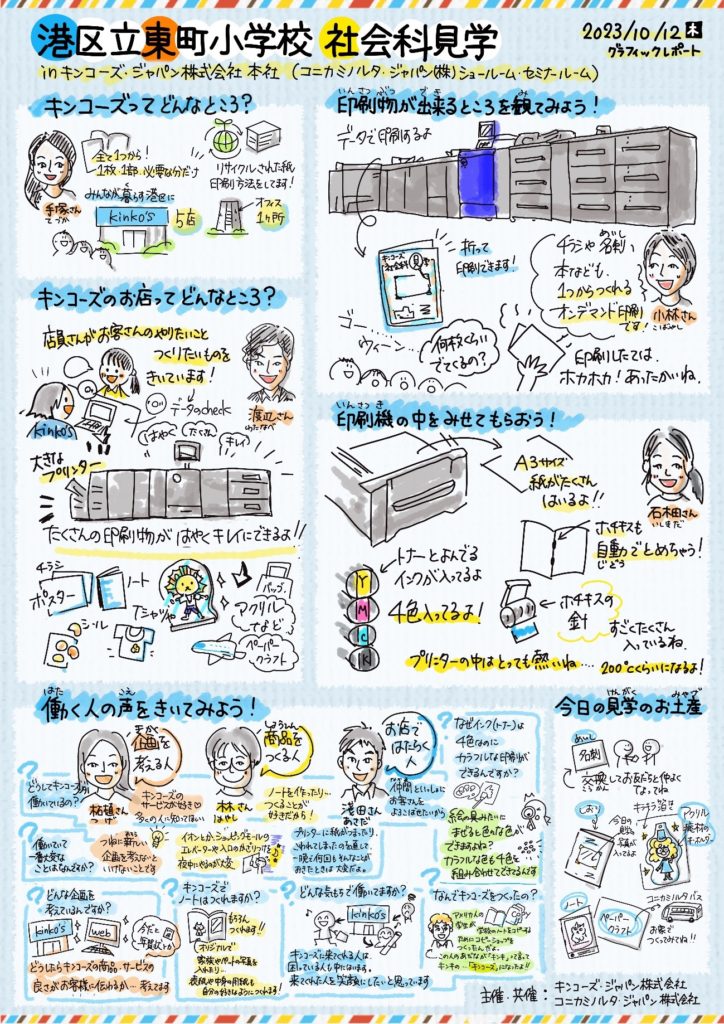 港区立東町小学校 社会科見学
2023/10/12 木
グラフィックレポート
in キンコーズ・ジャパン株式会社 本社 (コニカミノルタ・ジャパン(株)ショールーム・セミナールーム)
キンコーズってどんなところ?
手塚さん
てづか
全て1つから!
1枚、1部、必要な分だけ
リサイクルされた紙
印刷方法をしてます!
みんなが暮らす港区に
kinko's
5店
オフィス
1ヶ所
いんさつぶつ
でき
み
印刷物が出来るところを観てみよう!
データで印刷するよ
キンコーズ
社会科見学
折って
印刷できます!
めいし
チラシや名刺、
本なども、
1つからつくれる
オンデマンド印刷
です!
小林さん
こばやし
ゴー
ウィーン
何枚くらい
でてくるの?
印刷したては、
ホカホカ!あったかいね。
キンコーズのお店ってどんなところ?
店員さんがお客さんのやりたいこと
つくりたいものを
きいています!
渡辺さん
わたなべ
kinko's
データのcheck
はやく
たくさん
キレイ
大きな
プリンター
たくさんの印刷物が はやくキレイにできるよ!!
チラシ
ポスター
ノート
Tシャツや
バッグ
アクリル
など
シール
ペーパー
クラフト
いんさつき
印刷機の中をみせてもらおう!
A3サイズ
紙がたくさん
はいるよ!!
石田さん
いしだ
トナーとよんでる
インクが入ってるよ
Y
M
C
K
4色入ってるよ!
ホチキスも
自動でとめちゃう!
じどう
ホチキスの
針
すごくたくさん
入っているね
プリンターの中はとっても熱いね…… 200℃くらいになるよ!
はたら
こえ
働く人の声をきいてみよう!
きかく
企画を
考える人
柘植さん
つげ
しょうひん
商品を
つくる人
林さん
はやし
お店で
はたらく
人
浅田さん
あさだ
どうしてキンコーズで
働いているの?
キンコーズの
サービスが好き♡
多くの人に知ってほしい
ノートを作ったり…
つくることが
好きだから!
仲間といっしょに
お客さんを
よろこばせたいから
働いていて
一番大変な
ことはなんですか?
つねに新しい
企画を考えないと
いけないことです
イオンとか、ショッピングモールの
エレベーターや入口のかざりつけを
夜中にやるのが大変
プリンターに紙がつまったり、
こわれてしまったのを直して、
一晩に何回もそんなことが
おきたときは大変だよ。
どんな企画を
考えているんですか?
kinko's
web
どうしたらキンコーズの商品・サービスの
良さがお客様に伝わるか…考えてます
キンコーズで
ノートはつくれますか?
もちろん
つくれます!!
オリジナルで
表紙や中身の用紙も
自分の好きなようにつくれます!
どんな気もちで働いてますか?
kinko's
キンコーズに来てくれる人は、
困っている人も中にはいます。
来てくれた人を笑顔にしたいと思っています
なぜインク(トナー)は
4色なのに
カラフルな印刷が
できるんですか?
絵の具みたいに
まぜると色んな色が
できますよね?
カラフルな色も4色を
組み合わせてできるんです
なんでキンコーズをつくったの?
アメリカの
学生が
学校のノートをコピーする
ためにコピーショップを
つくったんだよ。
この人のあだなが「キンキー」って言って
キンキーの…「キンコーズ」になったよ!!
けんがく
みやげ
今日の見学のお土産
めいし
名刺
交換してお友だちと仲よくなってね
しおり
今日の
見学の
写真が
入ってるよ
キラキラ箔を
アクリル
廃材の
キーホルダー
ノート
ペーパー
クラフト
コニカミノルタバス
お家で
つくってみてね!!
主催・共催・キンコーズ・ジャパン株式会社
コニカミノルタ・ジャパン株式会社